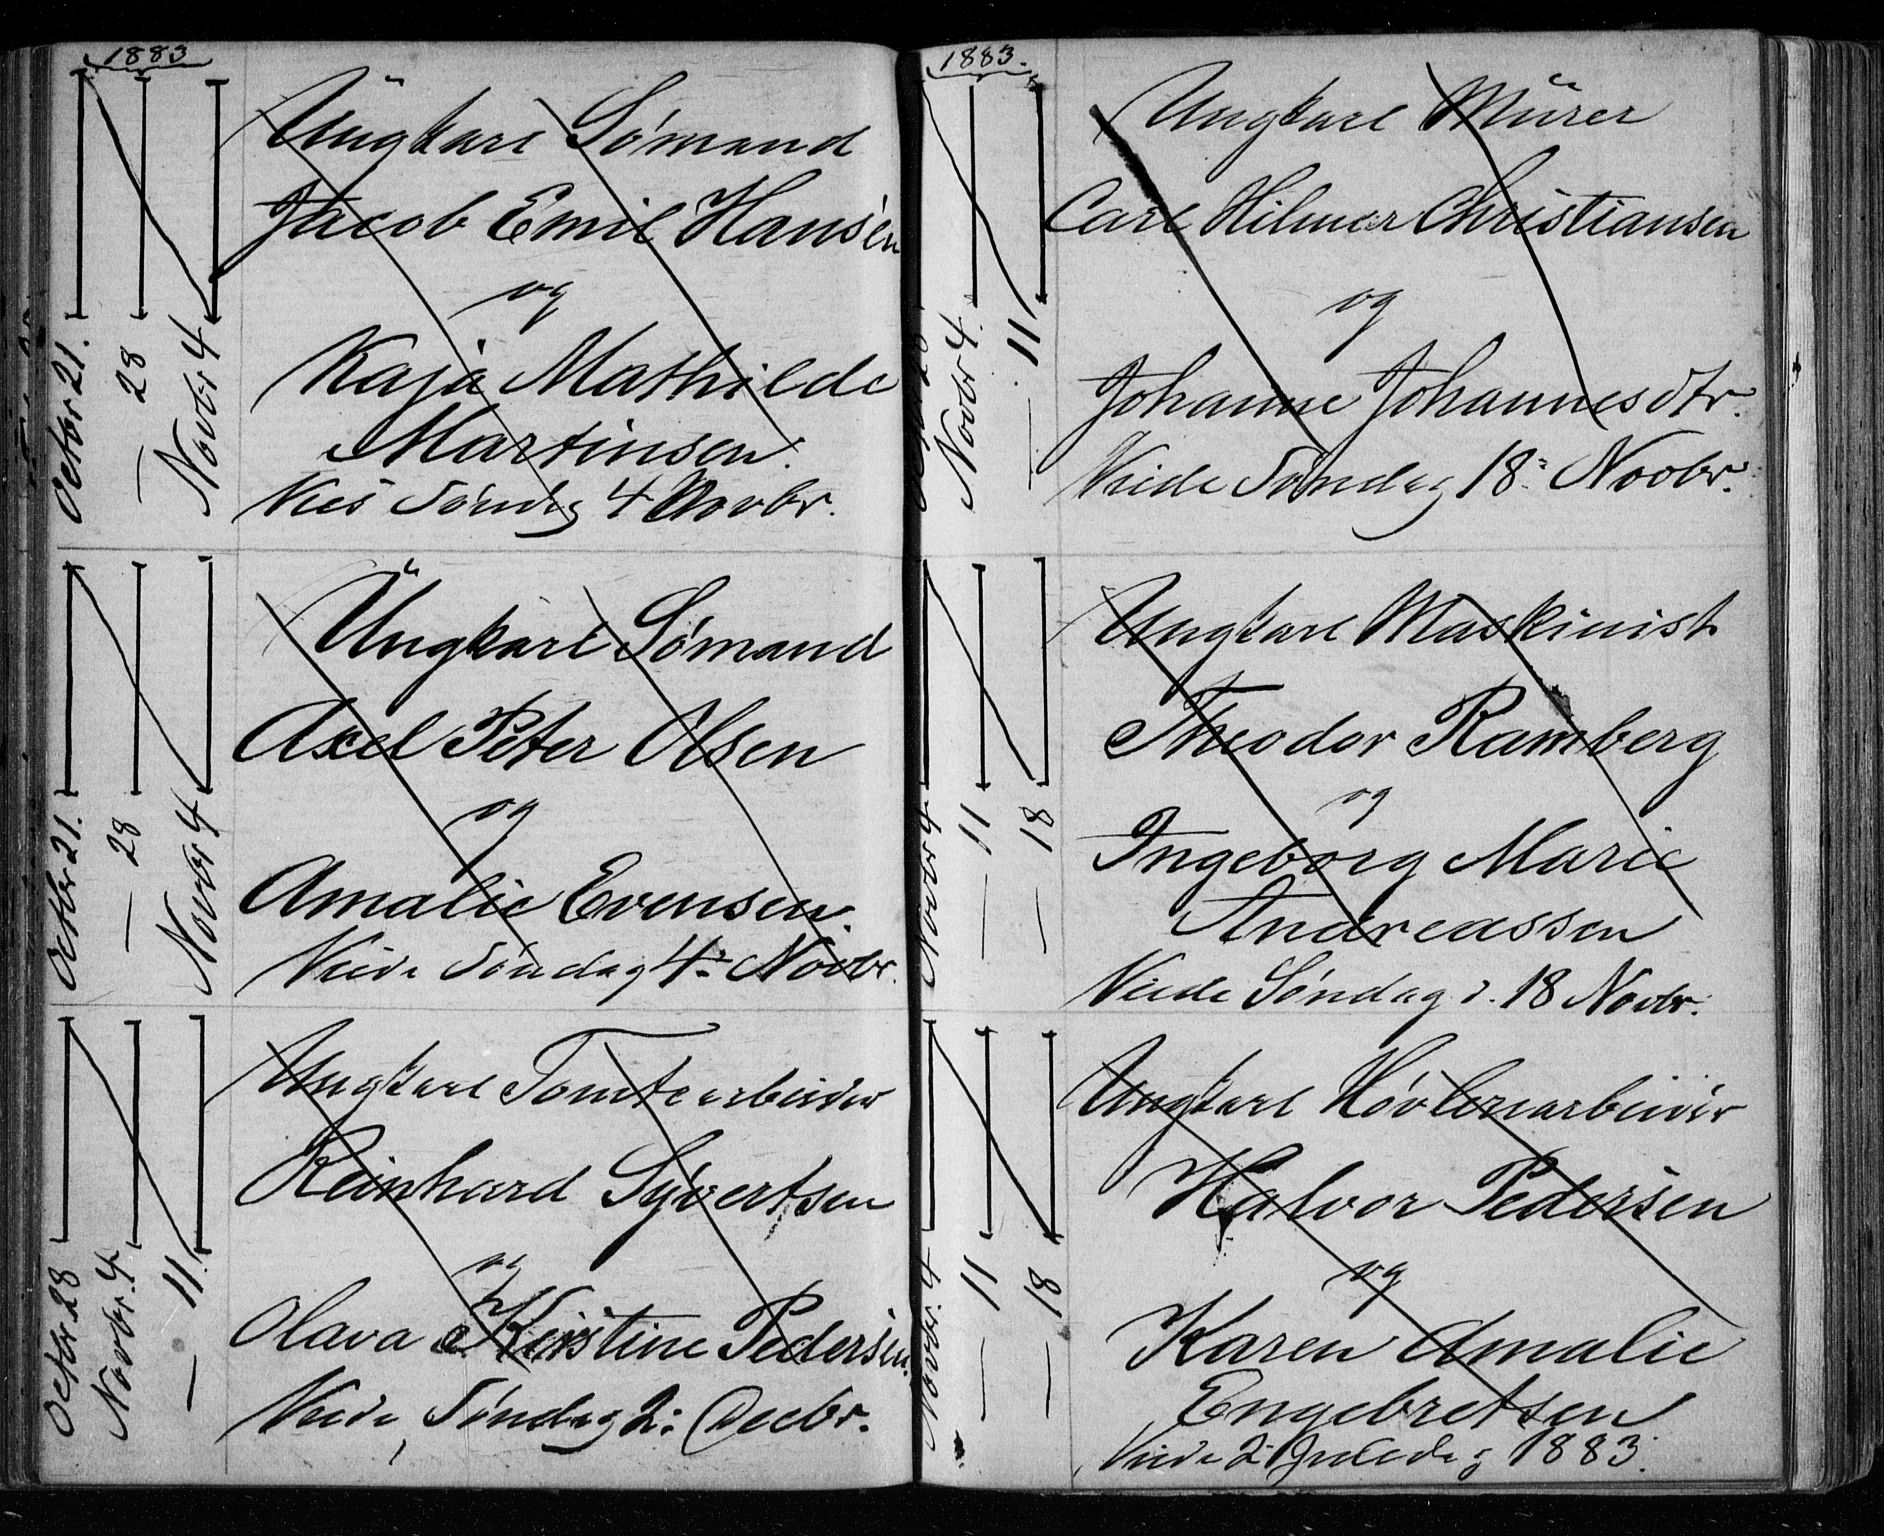 1883
Octbr 21.
— 28
Novbr 4
Ungkarl Sømand
Jacob Emil Hansen
og
Kaja Mathilde
Martinsen.
Vies Søndag 4 Novbr.
Octbr 21.
— 28
Novbr 4
Ungkarl Sømand
Axel Peter Olsen
og
Amalie Evensen
Viede Søndag 4: Novbr.
Octbr 28
Novbr. 4
— 11.
Ungkarl Tomtearbeider
Reinhard Syvertsen
og
Olava Kirstine Pedersen
Viede Søndag 2: Decbr.
1883.
Octbr 28
Novbr 4.
— 11
Ungkarl Murer
Carl Hilmar Christiansen
og
Johanne Johannesdtr.
Viede Søndag 18: Novbr.
Novbr 4
— 11
— 18
Ungkarl Maskinist
Theodor Ramberg
og
Ingeborg Marie
Andreassen
Viede Søndag d. 18 Novbr.
Novbr. 4
— 11
— 18
Ungkarl Høvleriarbeider
Halvor Pedersen
og
Karen Amalie
Engebretsen
Viede 2 Juledag 1883.